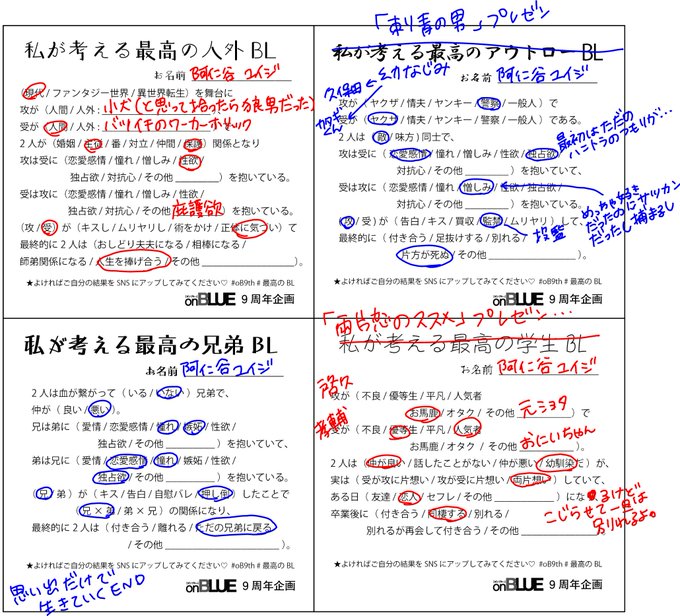 私が考える最高の人外BL
お名前 阿仁谷ユイジ
(現代/ファンタジー世界/異世界転生)を舞台に
攻が(人間/人外:小犬(と思って拾ったら狼男だった)
受が(人間/人外:バツイチのワーカーホリック
2人が(婚姻/主従/番/対立/仲間/保護)関係となり
攻は受に(恋愛感情/憧れ/憎しみ/性欲/
独占欲/対抗心/その他 )を抱いている。
受は攻に(恋愛感情/憧れ/憎しみ/性欲/
独占欲/対抗心/その他 庇護欲)を抱いている。
(攻/受)が(キスし/ムリヤリし/術をかけ/正体に気づい)て
最終的に2人は(おしどり夫夫になる/相棒になる/
師弟関係になる/人生を捧げ合う/その他 )。
★よければご自分の結果をSNSにアップしてみてください♡ #oB9th #最高のBL
onBLUE 9周年企画
「刺青の男」プレゼン
私が考える最高のアウトローBL
お名前 阿仁谷ユイジ
久保田 ← 幼なじみ
攻が(ヤクザ/情夫/ヤンキー/警察/一般人)で
カタギさん
受が(ヤクザ/情夫/ヤンキー/警察/一般人)である。
2人は(敵/味方)同士で、
攻は受に(恋愛感情/憧れ/憎しみ/性欲/独占欲/
対抗心/その他 )を抱いていて、
最初はただの
ハニトラのつもりが…
受は攻に(恋愛感情/憧れ/憎しみ/性欲/独占欲/
対抗心/その他 )を抱いている。
めっちゃ好き
だったのにサツカン
だったし捕まるし
(攻/受)が(告白/キス/買収/監禁/ムリヤリ)して、
最終的に(付き合う/足抜けする/別れる/
片方が死ぬ/その他 )。
★よければご自分の結果をSNSにアップしてみてください♡ #oB9th #最高のBL
onBLUE 9周年企画
私が考える最高の兄弟BL
お名前 阿仁谷ユイジ
2人は血が繋がって(いる/いない)兄弟で、
仲が(良い/悪い)。
兄は弟に(愛情/恋愛感情/憧れ/嫉妬/性欲/
独占欲/その他 )を抱いていて、
弟は兄に(愛情/恋愛感情/憧れ/嫉妬/性欲/
独占欲/その他 )を抱いている。
(兄/弟)が(キス/告白/自慰バレ/押し倒)したことで
(兄×弟/弟×兄)の関係になり、
最終的に2人は(付き合う/離れる/ただの兄弟に戻る
/その他 )。
★よければご自分の結果をSNSにアップしてみてください♡ #oB9th #最高のBL
思い出だけで
生きていくEND
onBLUE 9周年企画
「両片恋のススメ」プレゼン…
私が考える最高の学生BL
お名前 阿仁谷ユイジ
攻が(不良/優等生/平凡/人気者
お馬鹿/オタク/その他 元ショタ)で
受が(不良/優等生/平凡/人気者
お馬鹿/オタク/その他 おにいちゃん)である。
2人は(仲が良い/話したことがない/仲が悪い/幼馴染)だが、
実は(受が攻に片想い/攻が受に片想い/両片想い)していて、
ある日(友達/恋人/セフレ/その他 )になるけど
こじらせて一旦は
別れるよ。
卒業後に(付き合う/同棲する/別れる/
別れるが再会して付き合う/その他 )。
★よければご自分の結果をSNSにアップしてみてください♡ #oB9th #最高のBL
onBLUE 9周年企画